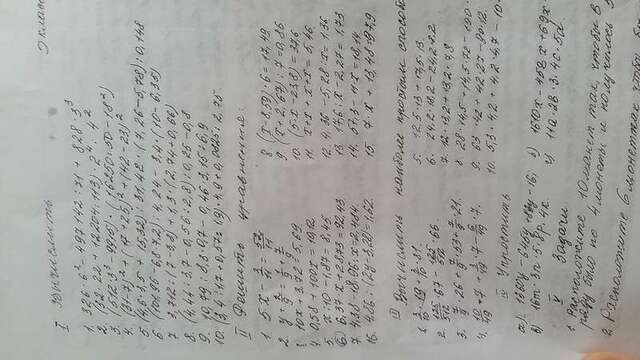 5 клас
I Вычислить
1. 326·6²-497142:71+828·3³
2. (32·22+12204:113)·2⁴:4²
3. (512:3³-9915)·(16250:50-18²)
4. (31-7)²+(17+25)²+(42-23)²
5. (4,6·3,5+15,32):31,42·(7,26-5,78):0,148
6. (101,96-6,8·7,2):4,24-3,4·(10-6,35)
7. 3,712:(7-3,8)+1,3·(2,74+0,66)
8. (4,44:3,7-0,56:2,8):0,25-0,8
9. 10,79:8,3·0,7-0,46·3,15:6,9
10. (3,4:1,7+0,57:1,9)·4,9+0,0825:2,75
II Решить уравнения:
1. 5x-3/11=52/11
2. y+2/9=5/9+7/9
3. 10x+3,72=5,69
4. 0,58+100x=19,12
5. x:10-1,87=8,45
6. 6,37·x+28,73=92,43
7. 4,38-18,96:x=2,484
16. 4,86:(2y-3,28)=1,62
8. (x-8,59)·6=17,49
9. (x+2,67):7=0,86
10. (5x-23,8)=37,6
11. x+x+x+x=5,46
12. 4,36-5,28:x=1,36
13. 17,6:x-2,27=1,73
14. 57,3-11x=18,14
15. 7·x+13,48=97,9
III Вычислить наиболее простым способо
1. 3/10·19+3/10·31
2. 125/512·67-125/512·66
3. 7/9·26+7/9·53+7/9·21
4. 10/49·7+3/49·7-6/49·7
5. 12,5·13+17,5·13
6. 24,2·18,2-24,2·8,2
7. 12·13,2+13,2·7,8
8. 28·14,5+14,5·72-190
9. 63·42+42·27-90·12
10. 5,3·4,2+4,2·4,7-10
IV Упростить
б) 16m·3n·5·8p·4k
в) 11a·2b·3·4c·5d
V Задачи
1. Расположите 10 монет так, чтобы в
ряду было по 4 монеты и получилось 5
2. Расположите 6 монет так, чтобы